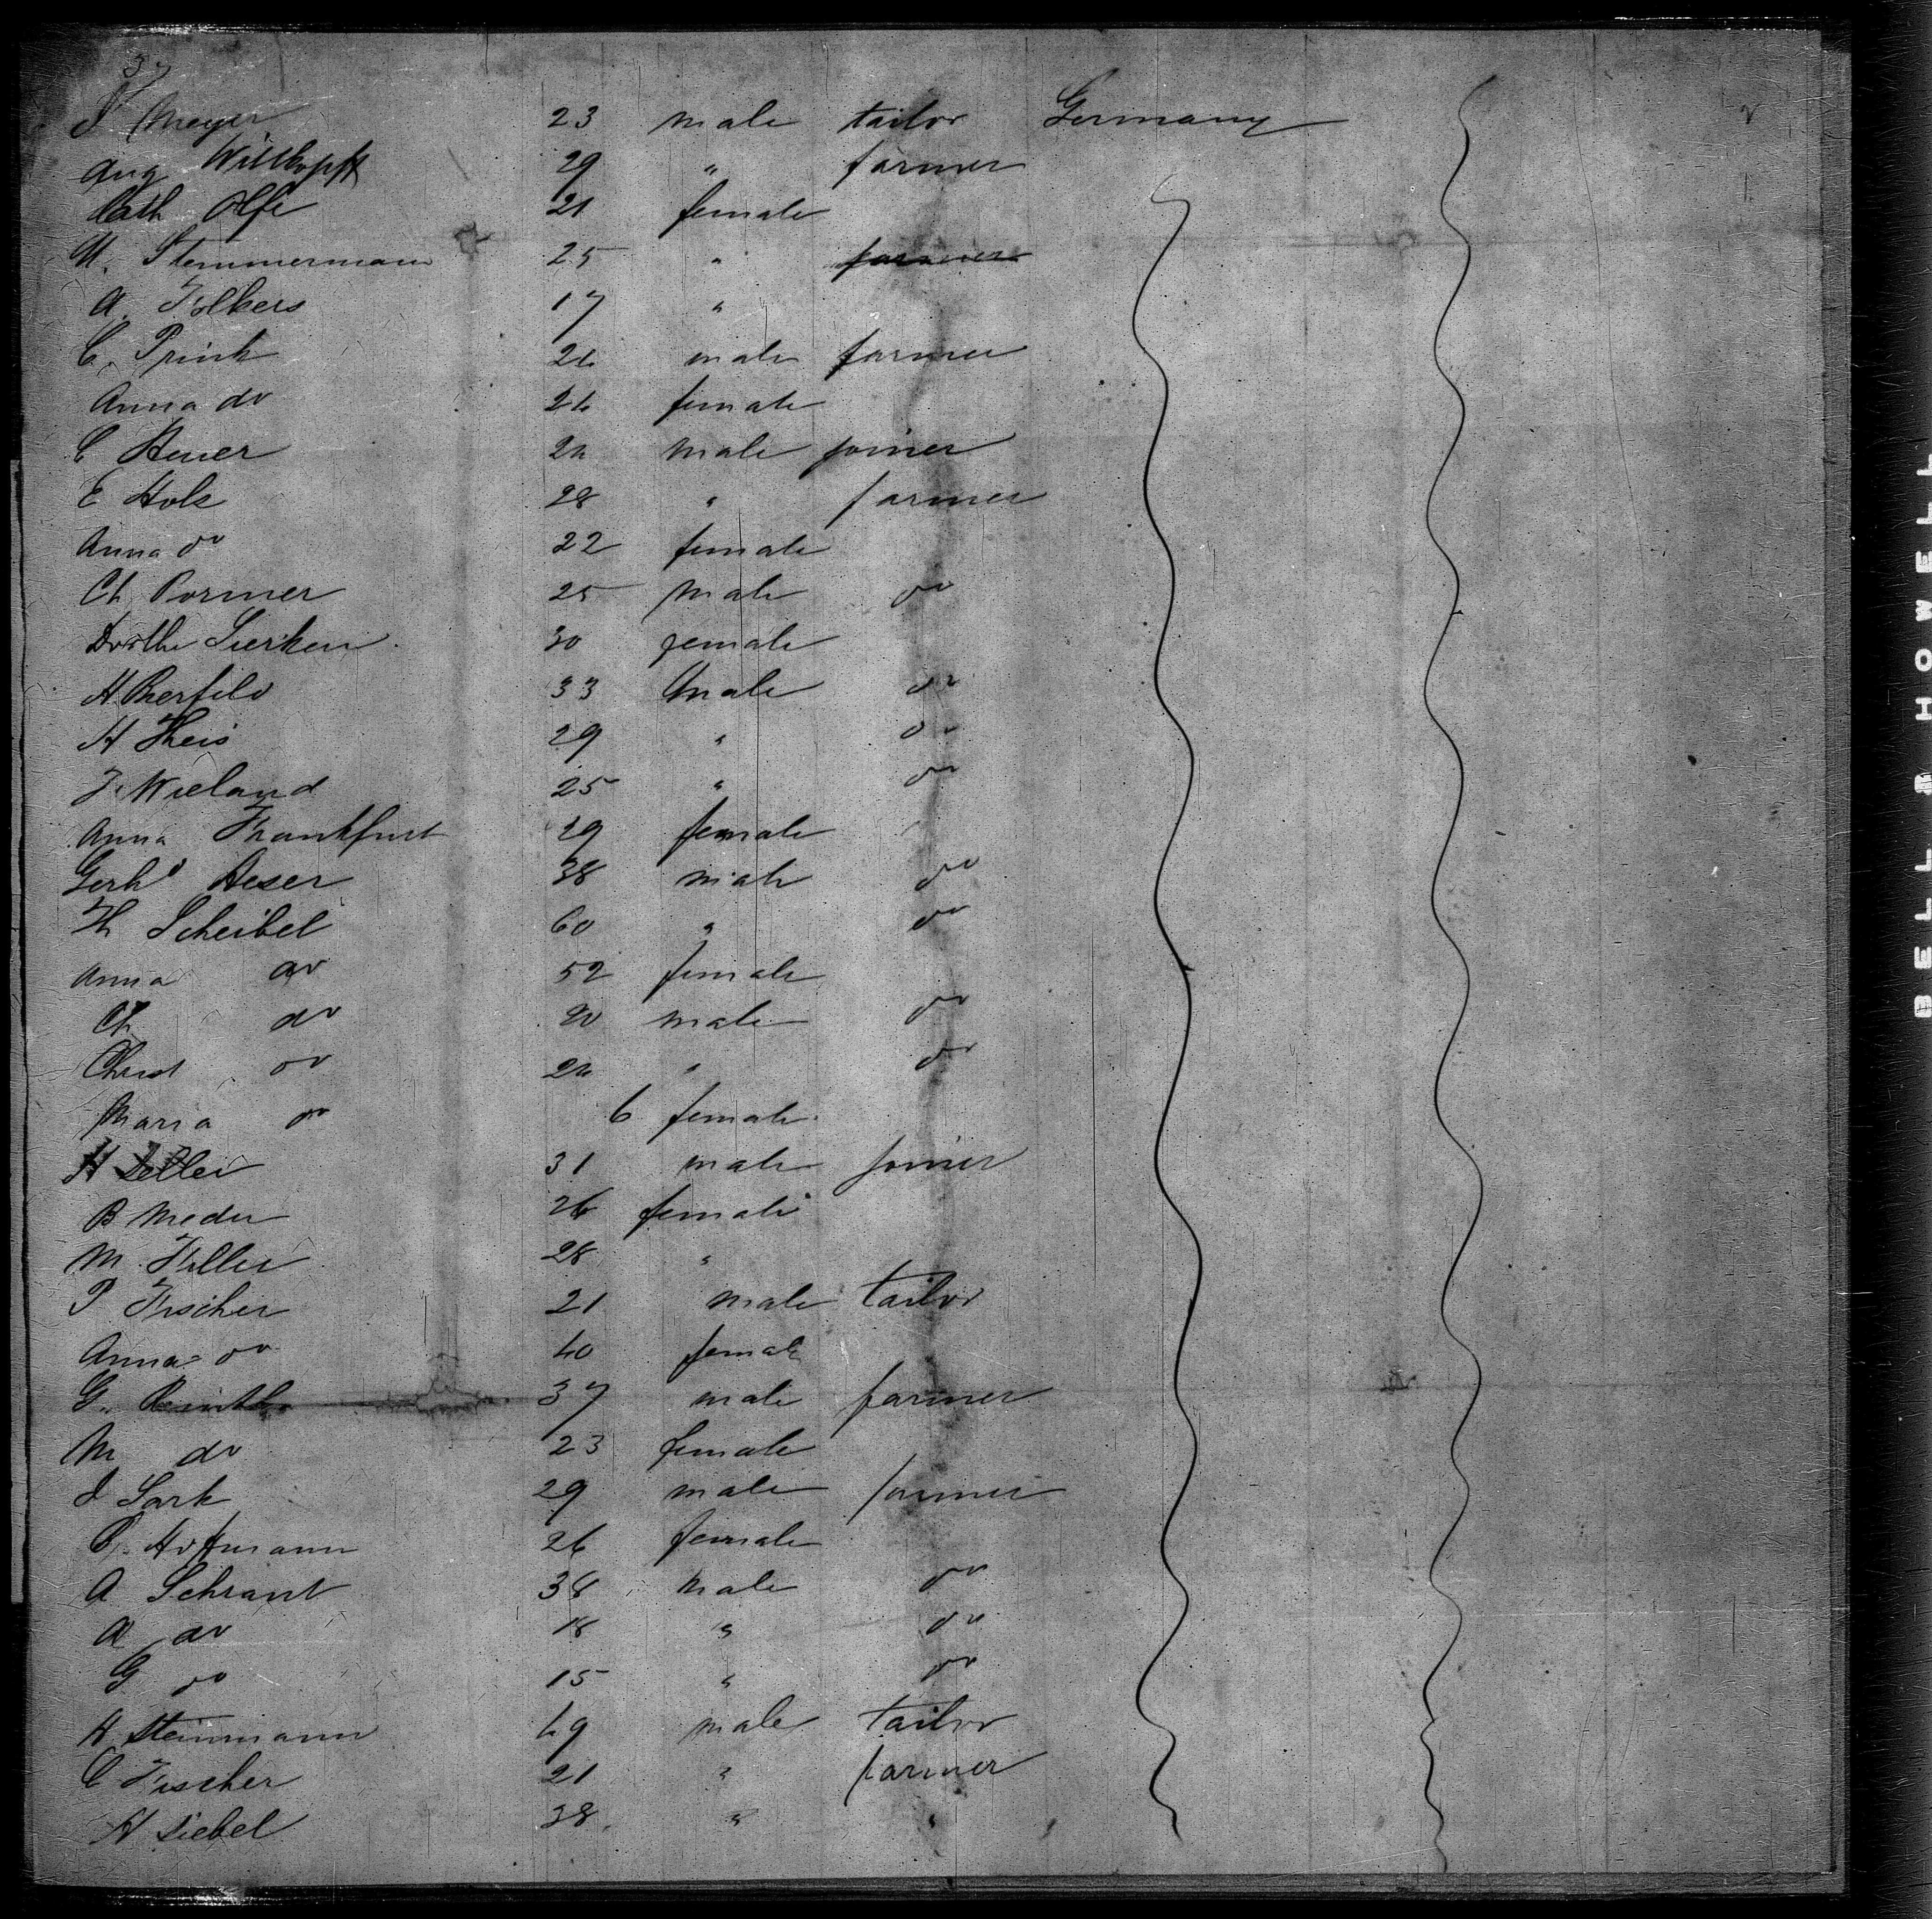 37
J Meyer 23 male tailor Germany
Aug Wittkopft 29 " farmer
Cath Olfe 21 female
M. Stemmermann 25 " farmer
A. Folkers 17 "
C. Prink 24 male farmer
Anna do 24 female
C Heuer 24 male joiner
E Holz 28 " farmer
Anna do 22 female
Ch Pormer 25 male do
Dorthe Sierken 30 female
H. 33 male do
H Theis 29 " do
J. Wieland 25 " do
Anna Frankfurt 29 female
Gerhd Heser 38 male do
H Scheibel 60 " do
Anna do 52 female
Ch do 20 male do
Christ do 24 " do
Maria do 6 female
H 31 male joiner
B Meder 26 female
M. Feller 28 "
P Fischer 21 male tailor
Anna do 40 female
G. 37 male farmer
M do 23 female
J Sark 29 male farmer
Hoffmann 26 female
A Schrant 38 male do
A do 18 " do
G do 15 " do
H Steinmann 49 male tailor
C Fischer 21 " farmer
H Siebel 38 " "
BELL & HOWELL